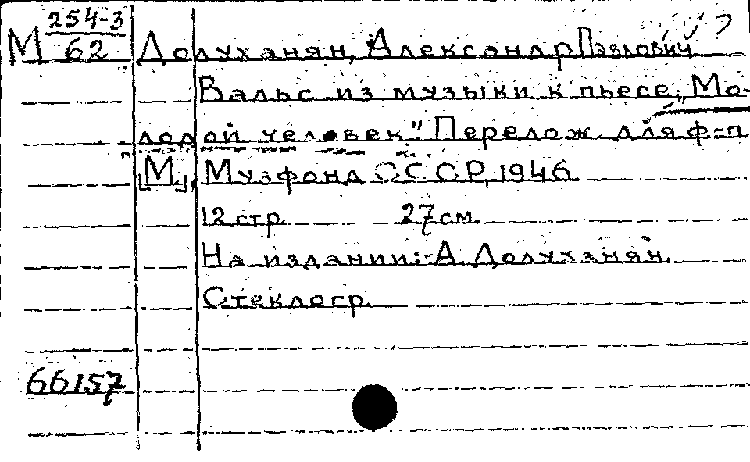 254-3
М 62 Долуханян, Александр Павлович
Вальс из музыки к пьесе „Мо-
лодой человек". Перелож. для ф-п
[М.], Музфонд СССР, 1946.
12 стр. 27 см.
На издании: А. Долуханян.
Стеклогр.
66157